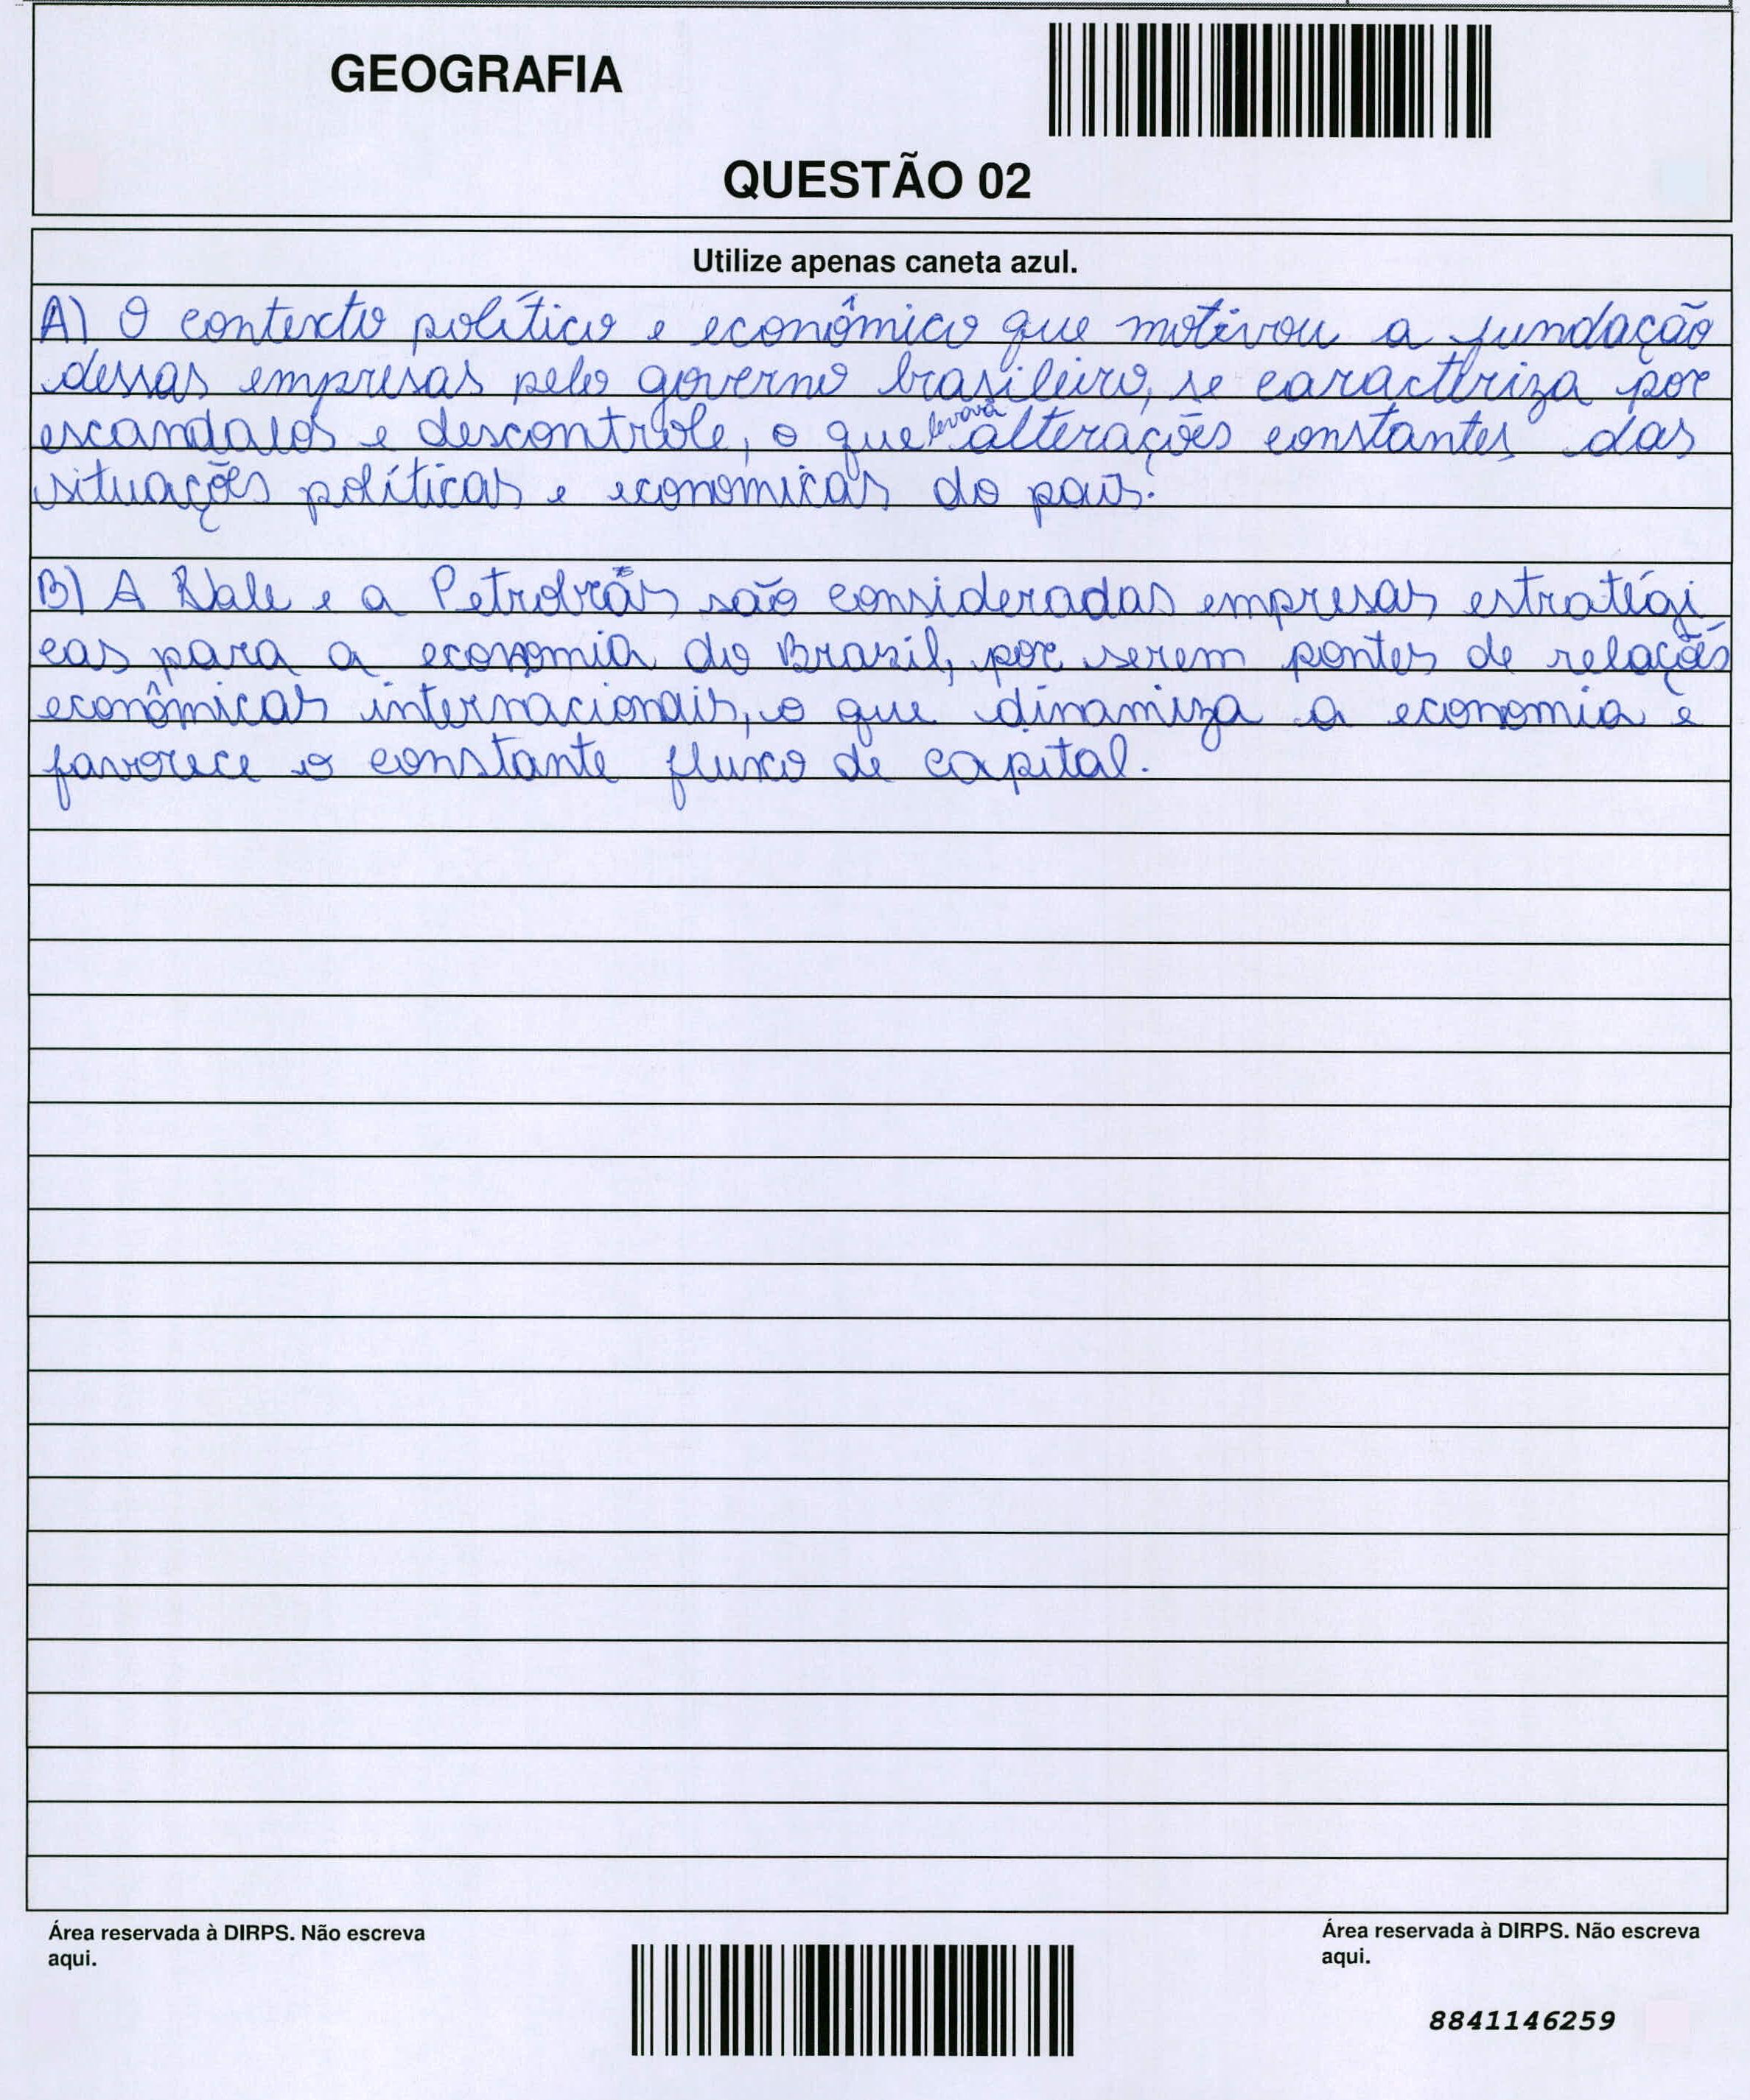 GEOGRAFIA
QUESTÃO 02
Utilize apenas caneta azul.
A) O contexto político e econômico que motivou a fundação
dessas empresas pelo governo brasileiro, se caracteriza por
escandalos e descontrole, o que levava alterações constantes das
situações políticas e economicas do país.
B) A Vale e a Petrobrás são consideradas empresas estratégi
cas para a economia do Brazil, por serem pontes de relações
econômicas internacionais, o que dinamiza a economia e
favorece o constante fluxo de capital.
Área reservada à DIRPS. Não escreva
aqui.
Área reservada à DIRPS. Não escreva
aqui.
8841146259